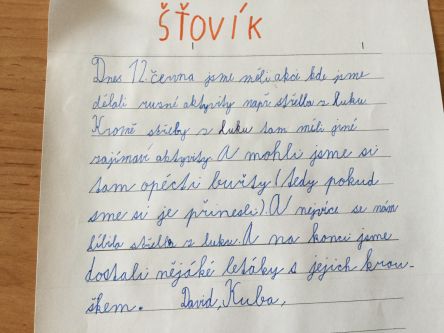 ŠŤOVÍK
Dnes 12. června jsme měli akci kde jsme
dělali rusné aktyvity např střelba z luku
Kromě střelby z luku tam měli jiné
zajímavé aktyvity A mohli jsme si
tam opécti buřty (tedy pokud
sme si je přinesli). A nejvíce se nám
líbila střelba z luku. A na konci jsme
dostali nějáké letáky s jejich krou-
škem. David, Kuba,